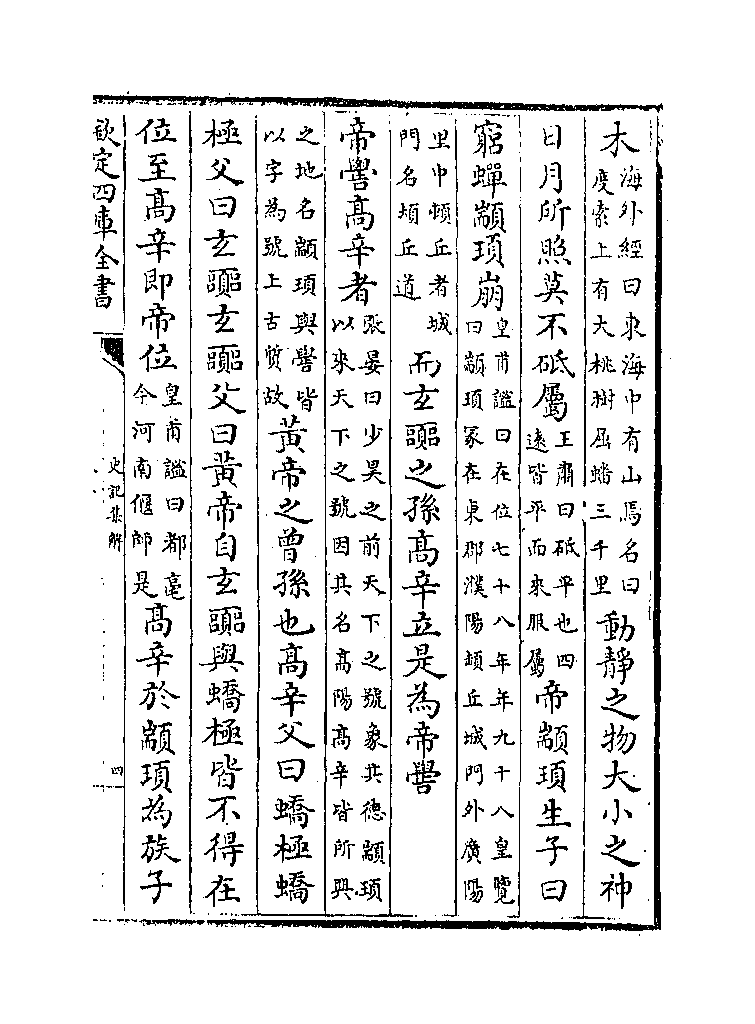 木海外經曰東海中有山焉名曰度索上有大桃樹屈蟠三千里動靜之物大小之神
日月所照莫不砥屬王肅曰砥平也四遠皆平而來服屬帝顓頊生子曰
窮蟬顓頊崩皇甫謐曰在位七十八年年九十八皇覽曰顓頊冢在東郡濮陽頓丘城門外廣陽
里中頓丘者城門名頓丘道而玄囂之孫高辛立是為帝嚳
帝嚳高辛者張晏曰少昊之前天下之號象其德顓頊以來天下之號因其名高陽高辛皆所興
之地名顓頊與嚳皆以字為號上古質故黃帝之曾孫也高辛父曰蟜極蟜
極父曰玄囂玄囂父曰黃帝自玄囂與蟜極皆不得在
位至高辛即帝位皇甫謐曰都亳今河南偃師是高辛於顓頊為族子
欽定四庫全書
史記集解
四